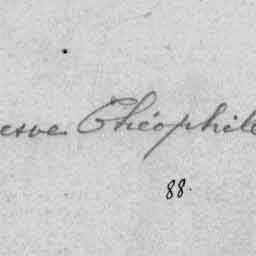 esve Théophile
88.